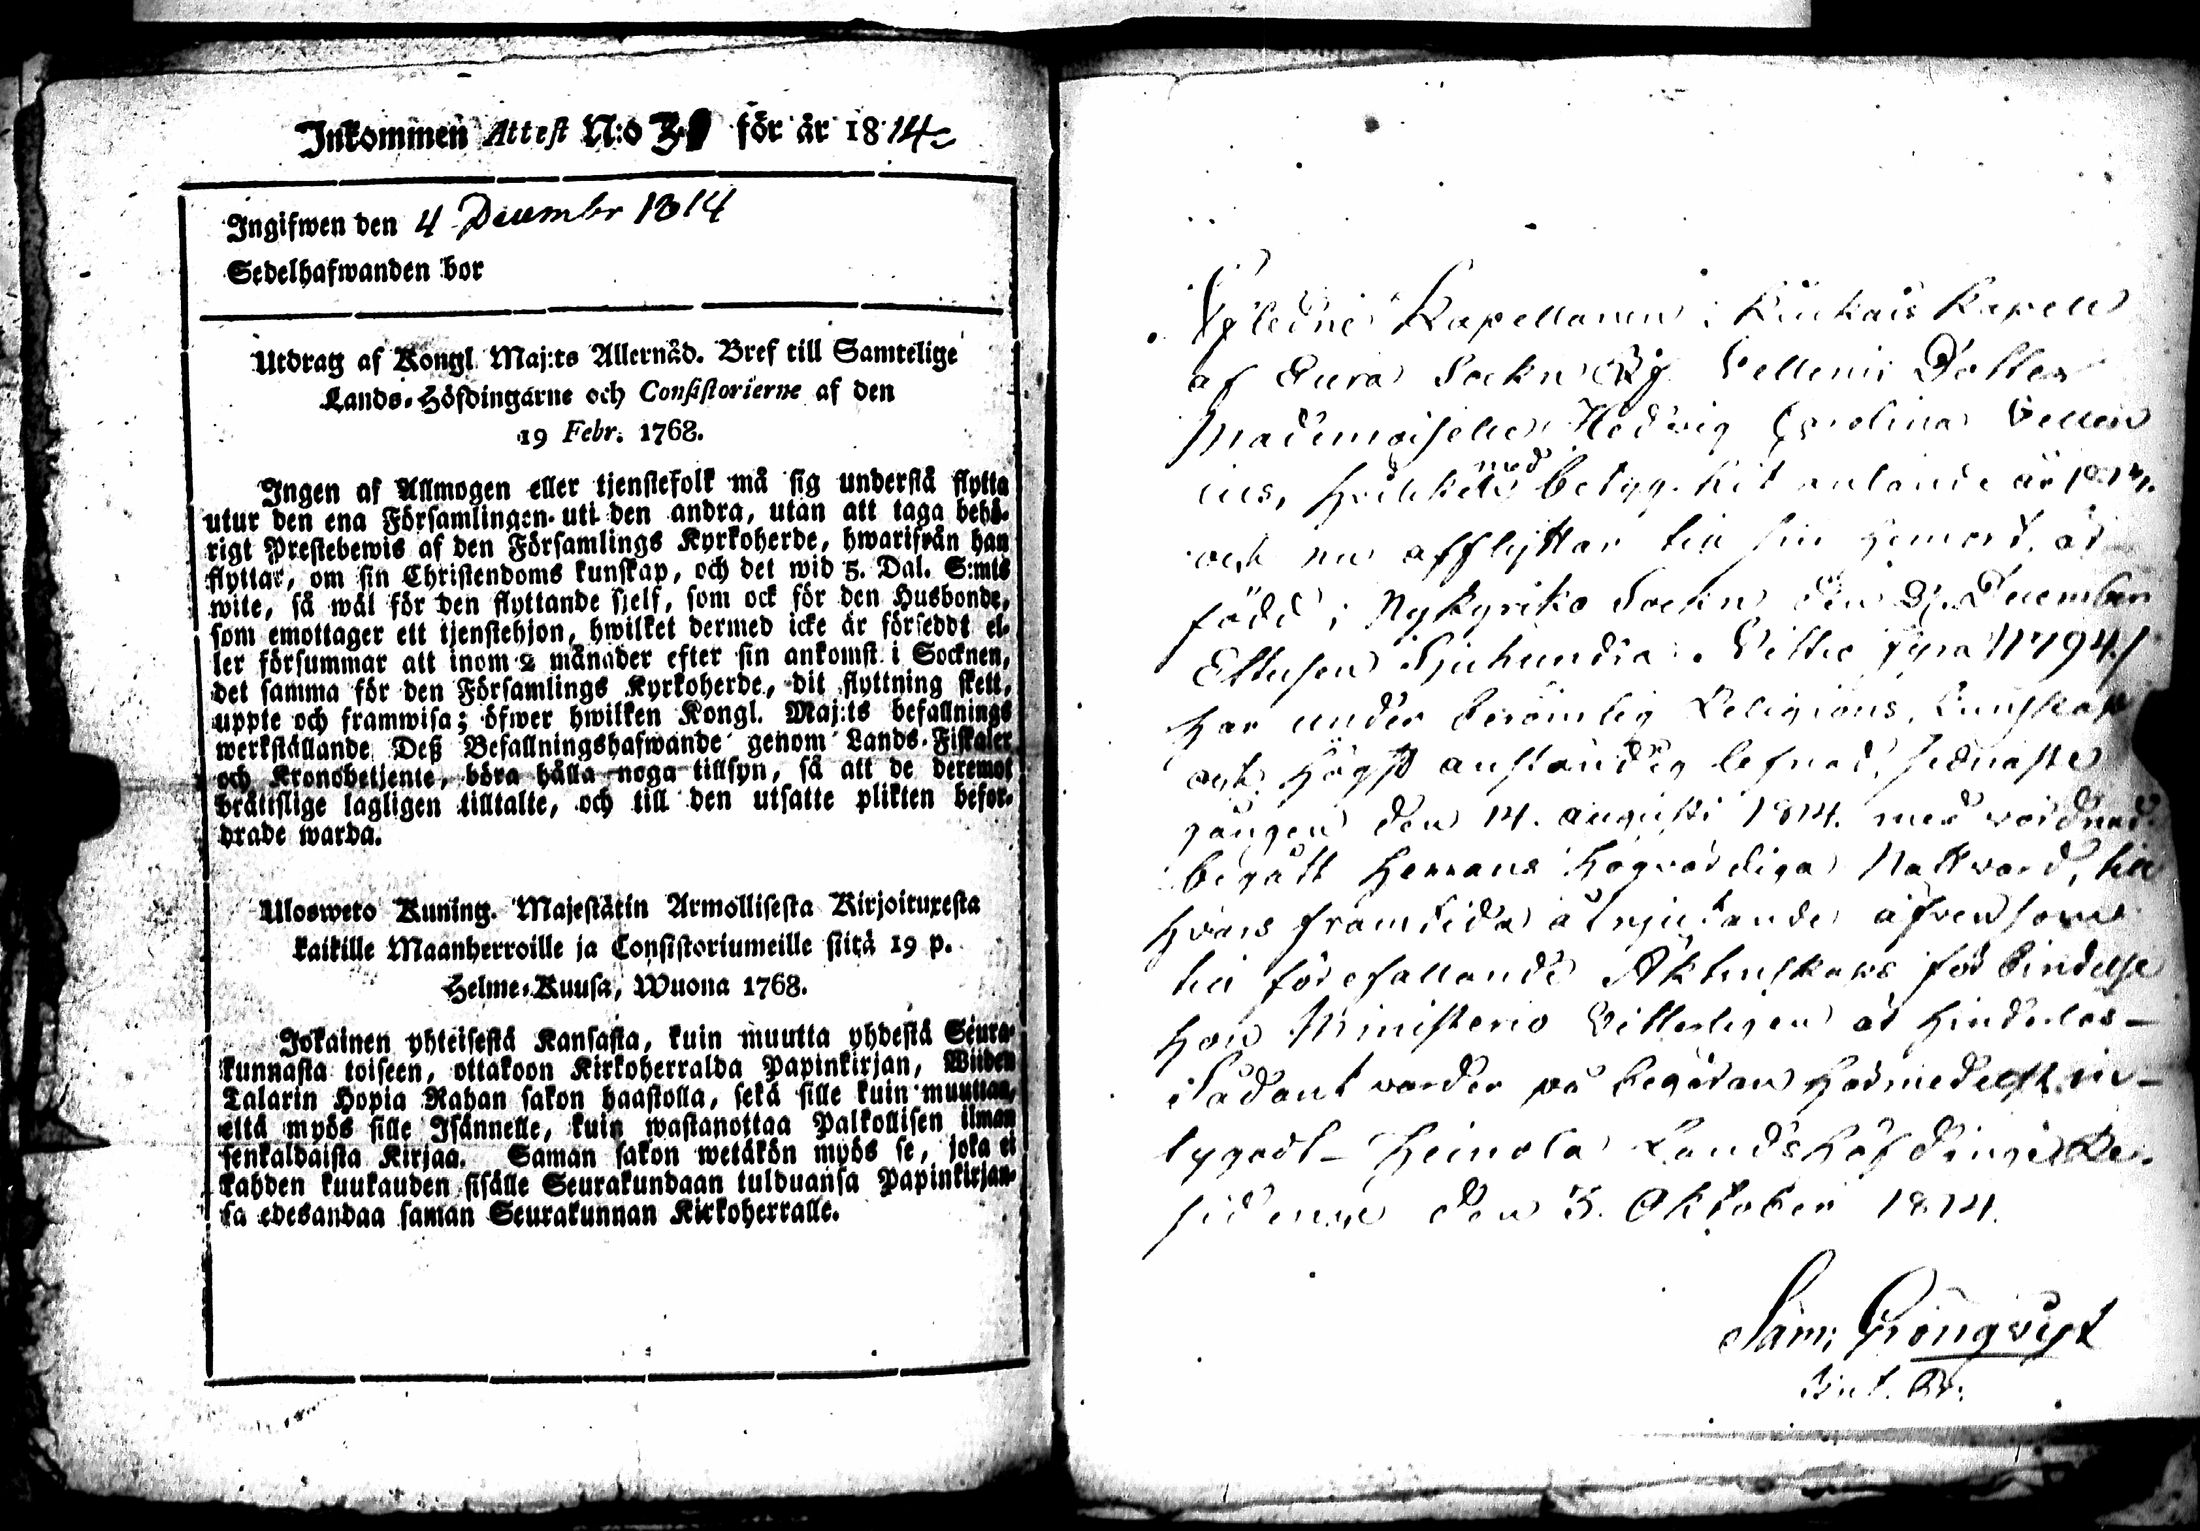 Inkommen Attest N:o för år 1814
Ingifwen den 4 Decembr 1814
Sedelhafwanden bor
Utdrag af Kongl. Maj:ts Allernåd. Bref till Samtelige
Lands-Höfdingarne och Consistorierne af den
19 Febr. 1768.
Ingen af Allmogen eller tjenstefolk må sig understå flytta
utur den ena Församlingen uti den andra, utan att taga behö-
rigt Prestebewis af den Församlings Kyrkoherde, hwarifrån han
flyttar, om sin Christendoms kunskap, och det wid 5. Dal. S:mts
wite, så wäl för den flyttande sjelf, som ock för den Husbonde,
som emottager ett tjenstehjon, hwilket dermed icke är förseddt el-
ler försummar att inom 2 månader efter sin ankomst i Socknen,
det samma för den Församlings Kyrkoherde, dit flyttning skett,
uppte och framwisa; öfwer hwilken Kongl. Maj:ts befallnings
werkställande Deß Befallningshafwande genom Lands-Fiskaler
och Kronobetjente, böra hålla noga tillsyn, så att de deremot
bråttslige lagligen tilltalte, och till den utsatte plikten befor-
drade warda.
Ulosweto Kuning. Majestätin Armollisesta Kirjoituxesta
kaikille Maanherroille ja Consistoriumeille siitä 19 p.
Helme-Kuusa, Wuona 1768.
Jokainen yhteisestä Kansasta, kuin muutta yhdestä Seura-
kunnasta toiseen, ottakoon Kirkoherralda Papinkirjan, Wiiden
Talarin Hopia Rahan sakon haastolla, sekä sille kuin muuttaa,
että myös sille Isännelle, kuin wastanottaa Palkollisen ilman
senkaldaista Kirjaa. Saman sakon wetäkön myös se, joka ei
kahden kuukauden sisälle Seurakundaan tulduansa Papinkirjan-
sa edesandaa saman Seurakunnan Kirkoherralle.
Afledne Kapellanen i Kiukais Kapell
af Eura Sockn Vellenii Dotter
Mademoiselle Hedvig Carolina Vellen
ius, hvilken med betyg hit anlände år 1814.
och nu afflyttar till sin hemort, är
född i Nykyrko Sockn den 31. December
Ettusen Sjuhundra Nittio fyra /1794./
har under berömlig Religions Kunskap
och högst anständig lefnad, sednaste
gången den 14. Augusti 1814. med vördnad
begått Herrans högvördiga Nattvard, till
hvars framtida åtnjutande äfven som
till förefallande Äktenskaps förbindelse
hon Ministerio Vitterligen är hinderlös_
Sådant varder på begäran härmedelst in_
tygadt_ Heinola Landshöfdinge Re-
sidence den 3. Oktober 1814.
Sam: Grönqvist